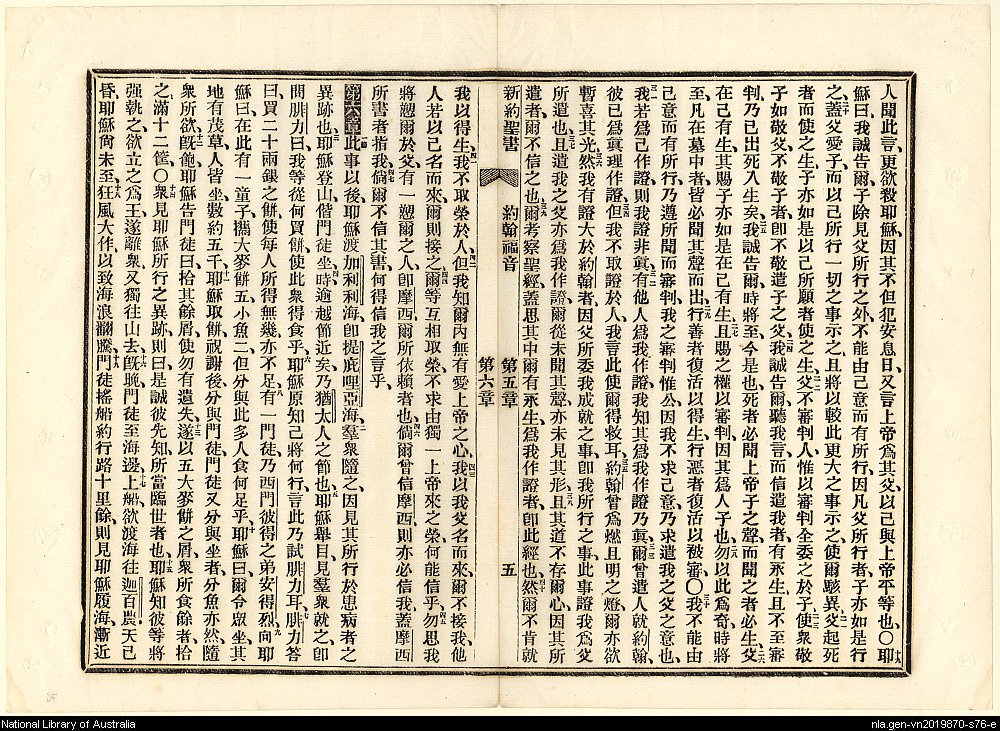 人聞此言更欲殺耶穌因其不但犯安息日又言上帝爲其父以己與上帝平等也〇耶
穌曰我誠告爾子除見父所行之外不能由己意而有所行因凡父所行者子亦如是行
之蓋父愛子而以己所行一切之事示之且將以較此更大之事示之使爾駭異父起死
者而使之生子亦如是以己所願者使之生父不審判人惟以審判全委之於子使衆敬
子如敬父不敬子者卽不敬遣子之父我誠告爾聽我言而信遣我者有永生且不至審
判乃已出死入生矣我誠告爾時將至今是也死者必聞上帝子之聲而聞之者必生父
在己有生其賜子亦如是在己有生且賜之權以審判因其爲人子也勿以此爲奇時將
至凡在墓中者皆必聞其聲而出行善者復活以得生行惡者復活以被審〇我不能由
己意而有所行乃遵所聞而審判我之審判惟公因我不求己意乃求遣我之父之意也
我若爲己作證則我證非眞有他人爲我作證我知其爲我作證乃眞爾曾遣人就約翰
彼已爲眞理作證但我不取證於人我言此使爾得救耳約翰曾爲燃且明之燈爾亦欲
暫喜其光然我有證大於約翰者因父所委我成就之事卽我所行之事此事證我爲父
所遣也且遣我之父亦爲我作證爾從未聞其聲亦未見其形且其道不存爾心因其所
遣者爾不信之也爾考察聖經蓋思其中爾有永生爲我作證者卽此經也然爾不肯就
新約聖書 約翰福音 第五章 五
第六章
我以得生我不取榮於人但我知爾內無有愛上帝之心我以我父名而來爾不接我他
人若以己名而來爾則接之爾等互相取榮不求由獨一上帝來之榮何能信乎勿思我
將愬爾於父有一愬爾之人卽摩西爾所依賴者也倘爾曾信摩西則亦必信我蓋摩西
所書者指我倘爾不信其書何得信我之言乎
第六章此事以後耶穌渡加利利海卽提庇哩亞海羣衆隨之因見其所行於患病者之
異跡也耶穌登山偕門徒坐時逾越節近矣乃猶太人之節也耶穌舉目見羣衆就之卽
問腓力曰我等從何買餅使此衆得食乎耶穌原知己將何行言此乃試腓力耳腓力答
曰買二十兩銀之餅使每人所得無幾亦不足有一門徒乃西門彼得之弟安得烈向耶
穌曰在此有一童子攜大麥餅五小魚二但分與此多人食何足乎耶穌曰爾令眾坐其
地有茂草人皆坐數約五千耶穌取餅祝謝後分與門徒門徒又分與坐者分魚亦然隨
衆所欲旣飽耶穌告門徒曰拾其餘屑使勿有遺失遂以五大麥餅之屑衆所食餘者拾
之滿十二筐〇衆見耶穌所行之異跡則曰是誠彼先知所當臨世者也耶穌知彼等將
强執之欲立之爲王遂離衆又獨往山去旣晚門徒至海邊上船欲渡海往迦百農天已
昏耶穌尚未至狂風大作以致海浪翻騰門徒搖船約行路十里餘則見耶穌履海漸近
National Library of Australia
nla.gen-vn2019870-s76-e